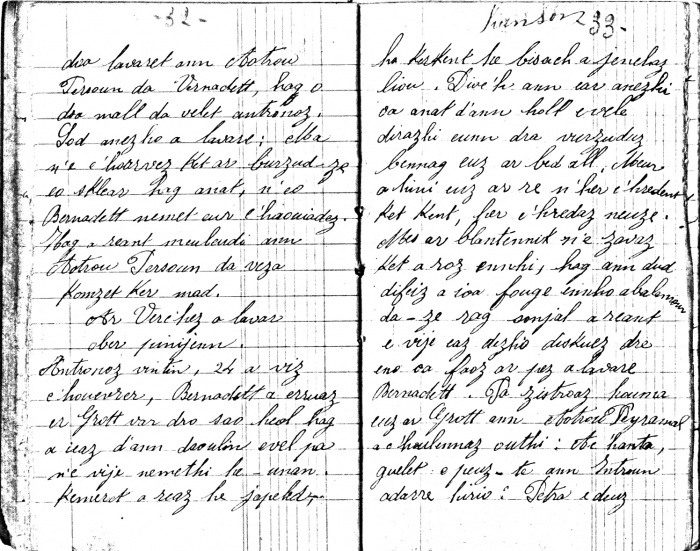 -32-
doa lavaret ann Aotrou
Persoun da Vernadett, hag e
doa mall da velet antronoz.
God anezho a lavare: Ma
n'e c'hoarvez ket ar burzud-ze
eo sklear hag anat, n'eo
Bernadett nemet eur c'haouiadez.
Hag a reant meuleudi ann
Aotrou Persoun da veza
Komzet ker mad.
Ar Verc'hez a lavar
ober pinijenn.
Antronoz vintin, 24 a viz
c'houevrer, Bernadett a erruaz
er Grott var dro sao heol hag
a ieaz d'ann daoulin evel pa
n'e vije nemethi he-unan.
Kemeret a reaz he japeled,
33
ha kerkent he bisach a jenchaz
liou. Diwc'h ann ear anezhi
oa anat d'ann holl e vele
dirazhi eunn dra vurzuduz
bennag euz ar bed all. Meur
a hini euz ar re n'her c'hredent
ket kent, her c'hredaz neuze.
Mes ar blantennik n'e zavaz
ket a roz ennhi, hag ann dud
difeiz a ioa fouge ennho abalamour
da-ze rag omjal a reant
e vije eaz dezho diskuez dre
eno oa faoz ar pez a lavare
Bernadett. Pa zistroaz houma
euz ar Grott ann Aotrou Peyramal
a c'houlennaz outhi: Ac'hanta,
guelet o peuz-te ann Introun
adarre hirio? Petra e deuz